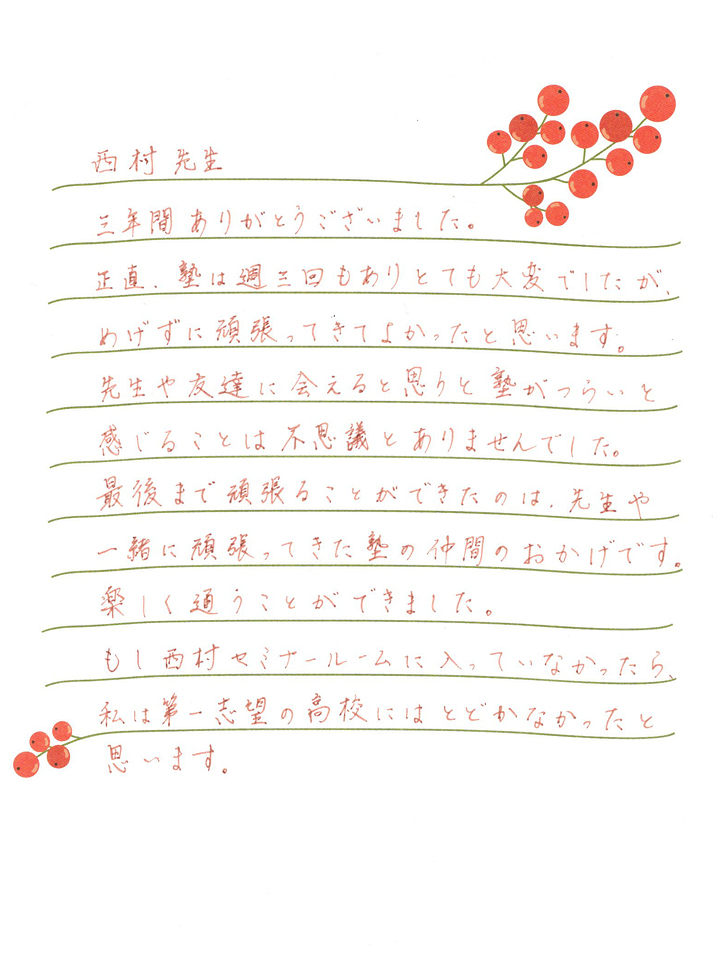 西村先生
三年間ありがとうございました。
正直、塾は週三回もありとても大変でしたが、
めげずに頑張ってきてよかったと思います。
先生や友達に会えると思うと塾がつらいと
感じることは不思議とありませんでした。
最後まで頑張ることができたのは、先生や
一緒に頑張ってきた塾の仲間のおかげです。
楽しく通うことができました。
もし西村セミナールームに入っていなかったら、
私は第一志望の高校にはとどかなかったと
思います。